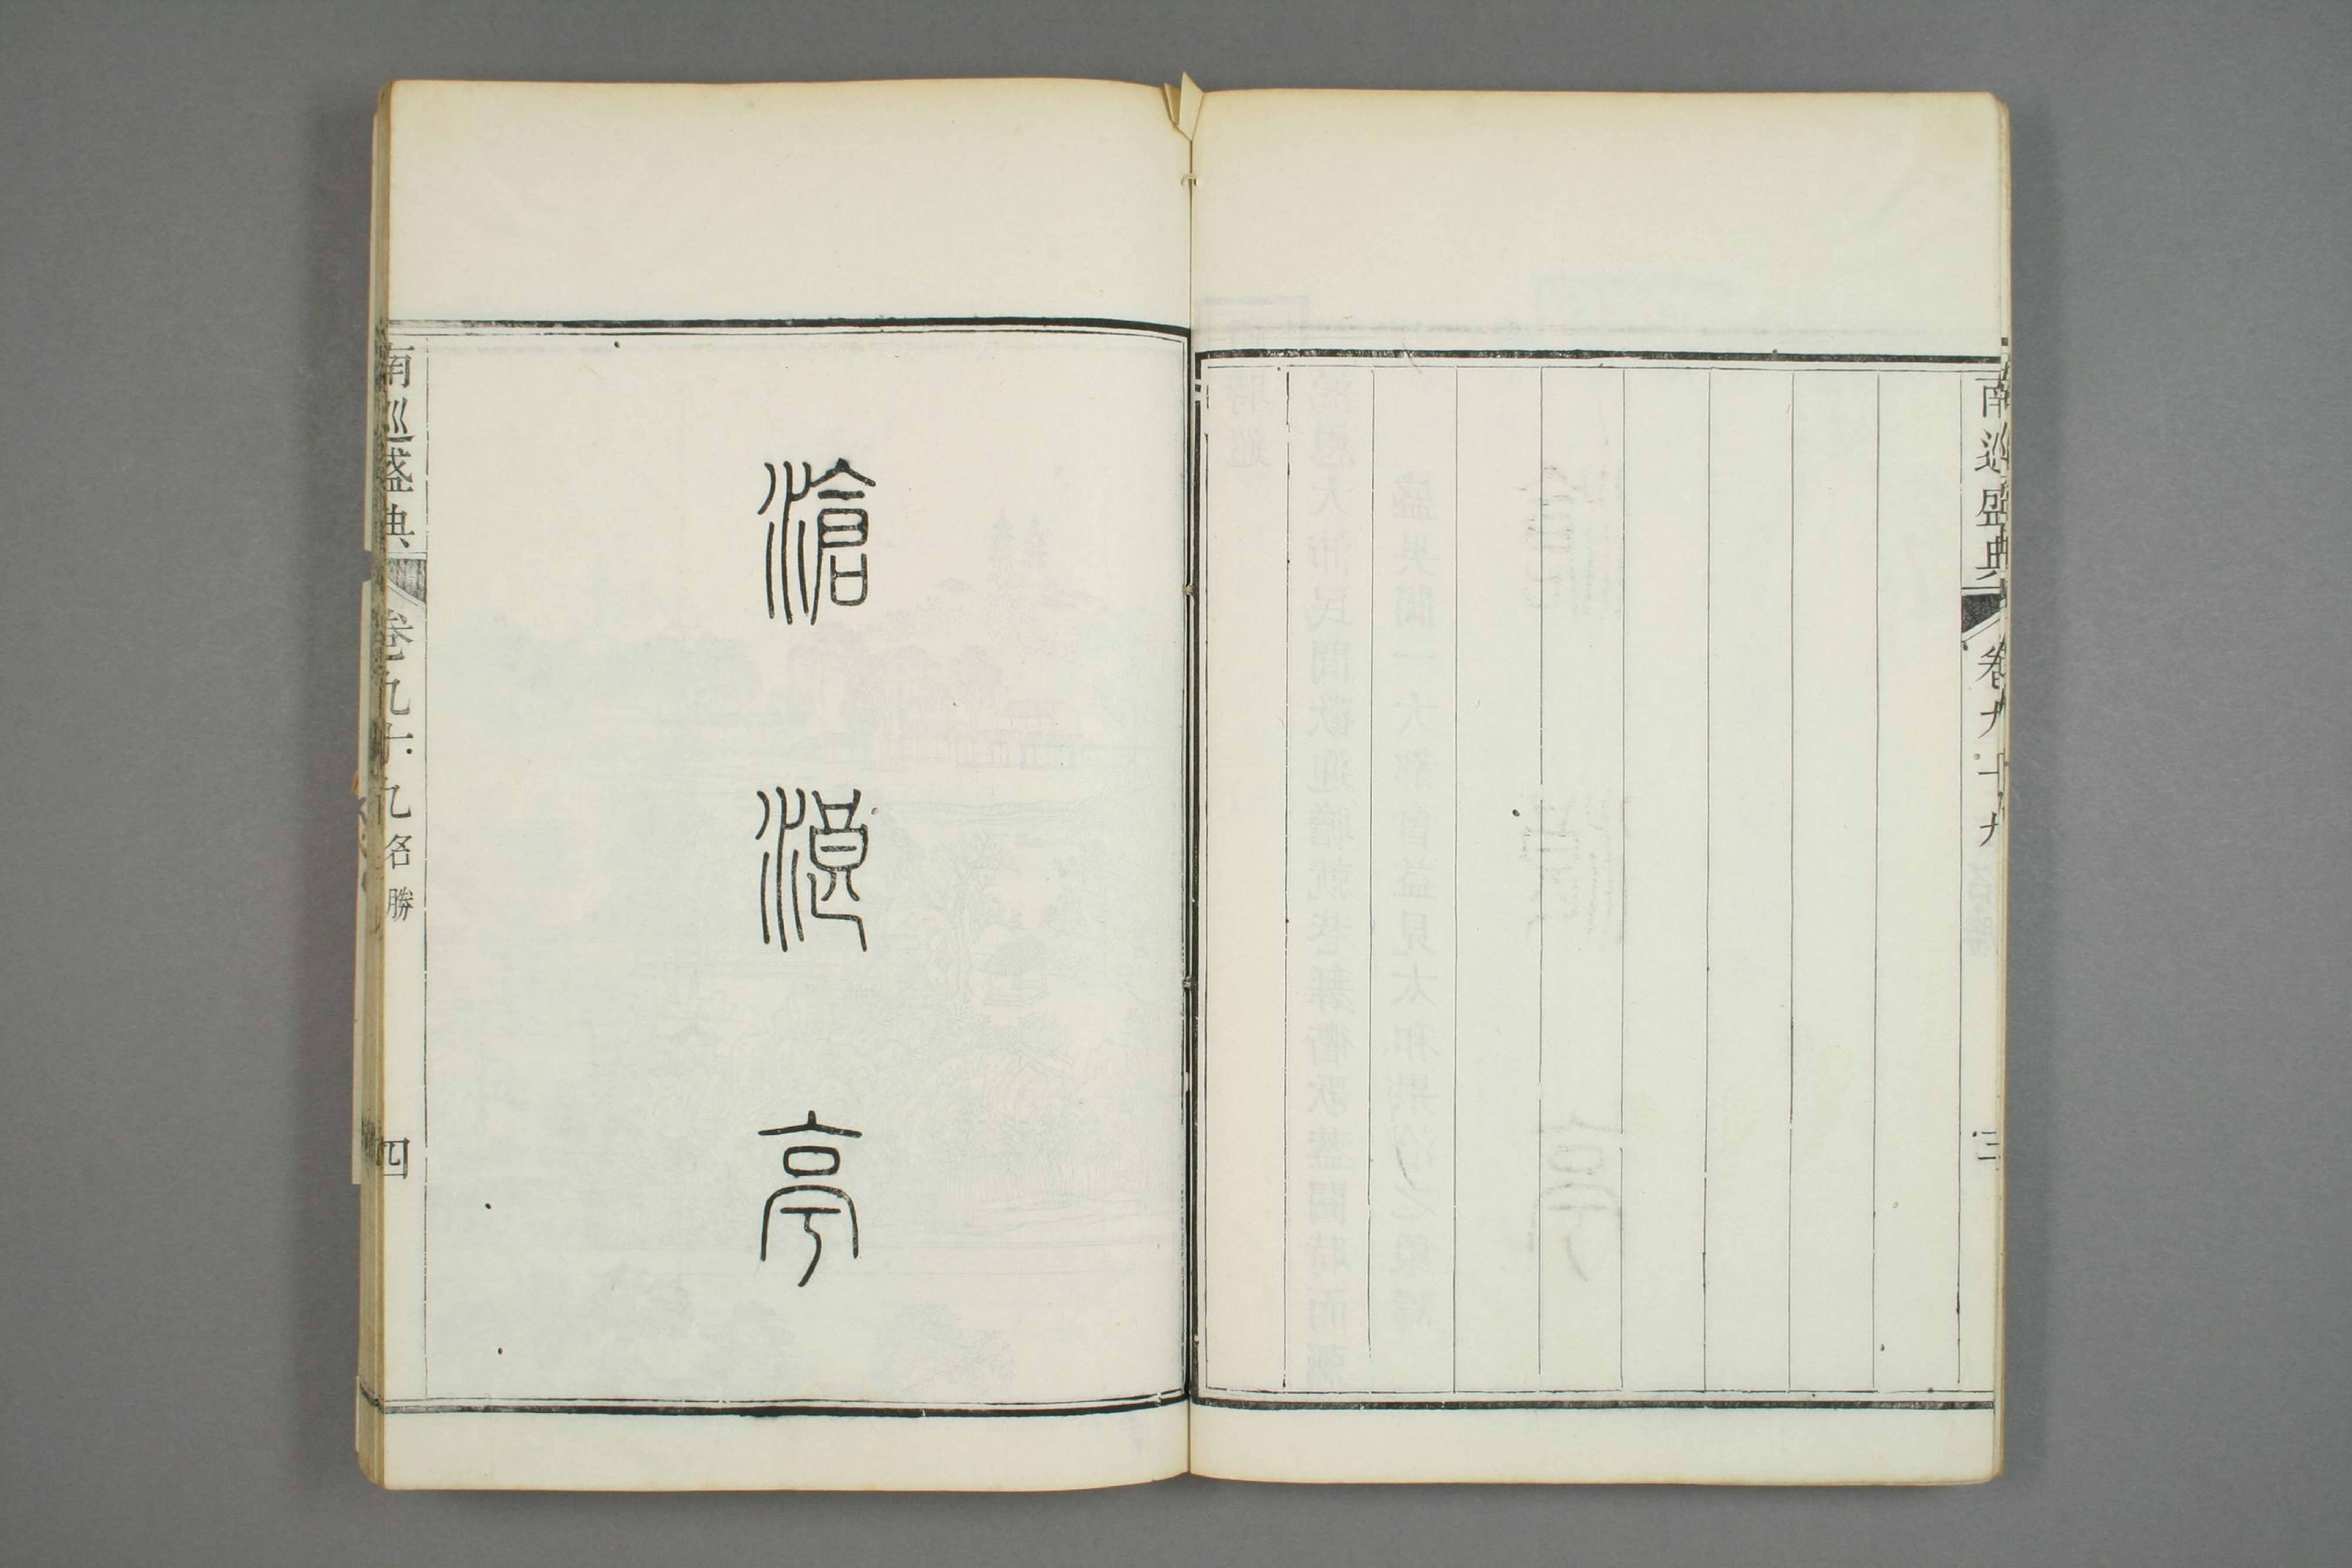 南巡盛典
卷九十九
三
滄浪亭
南巡盛典
卷九十九
名勝
四